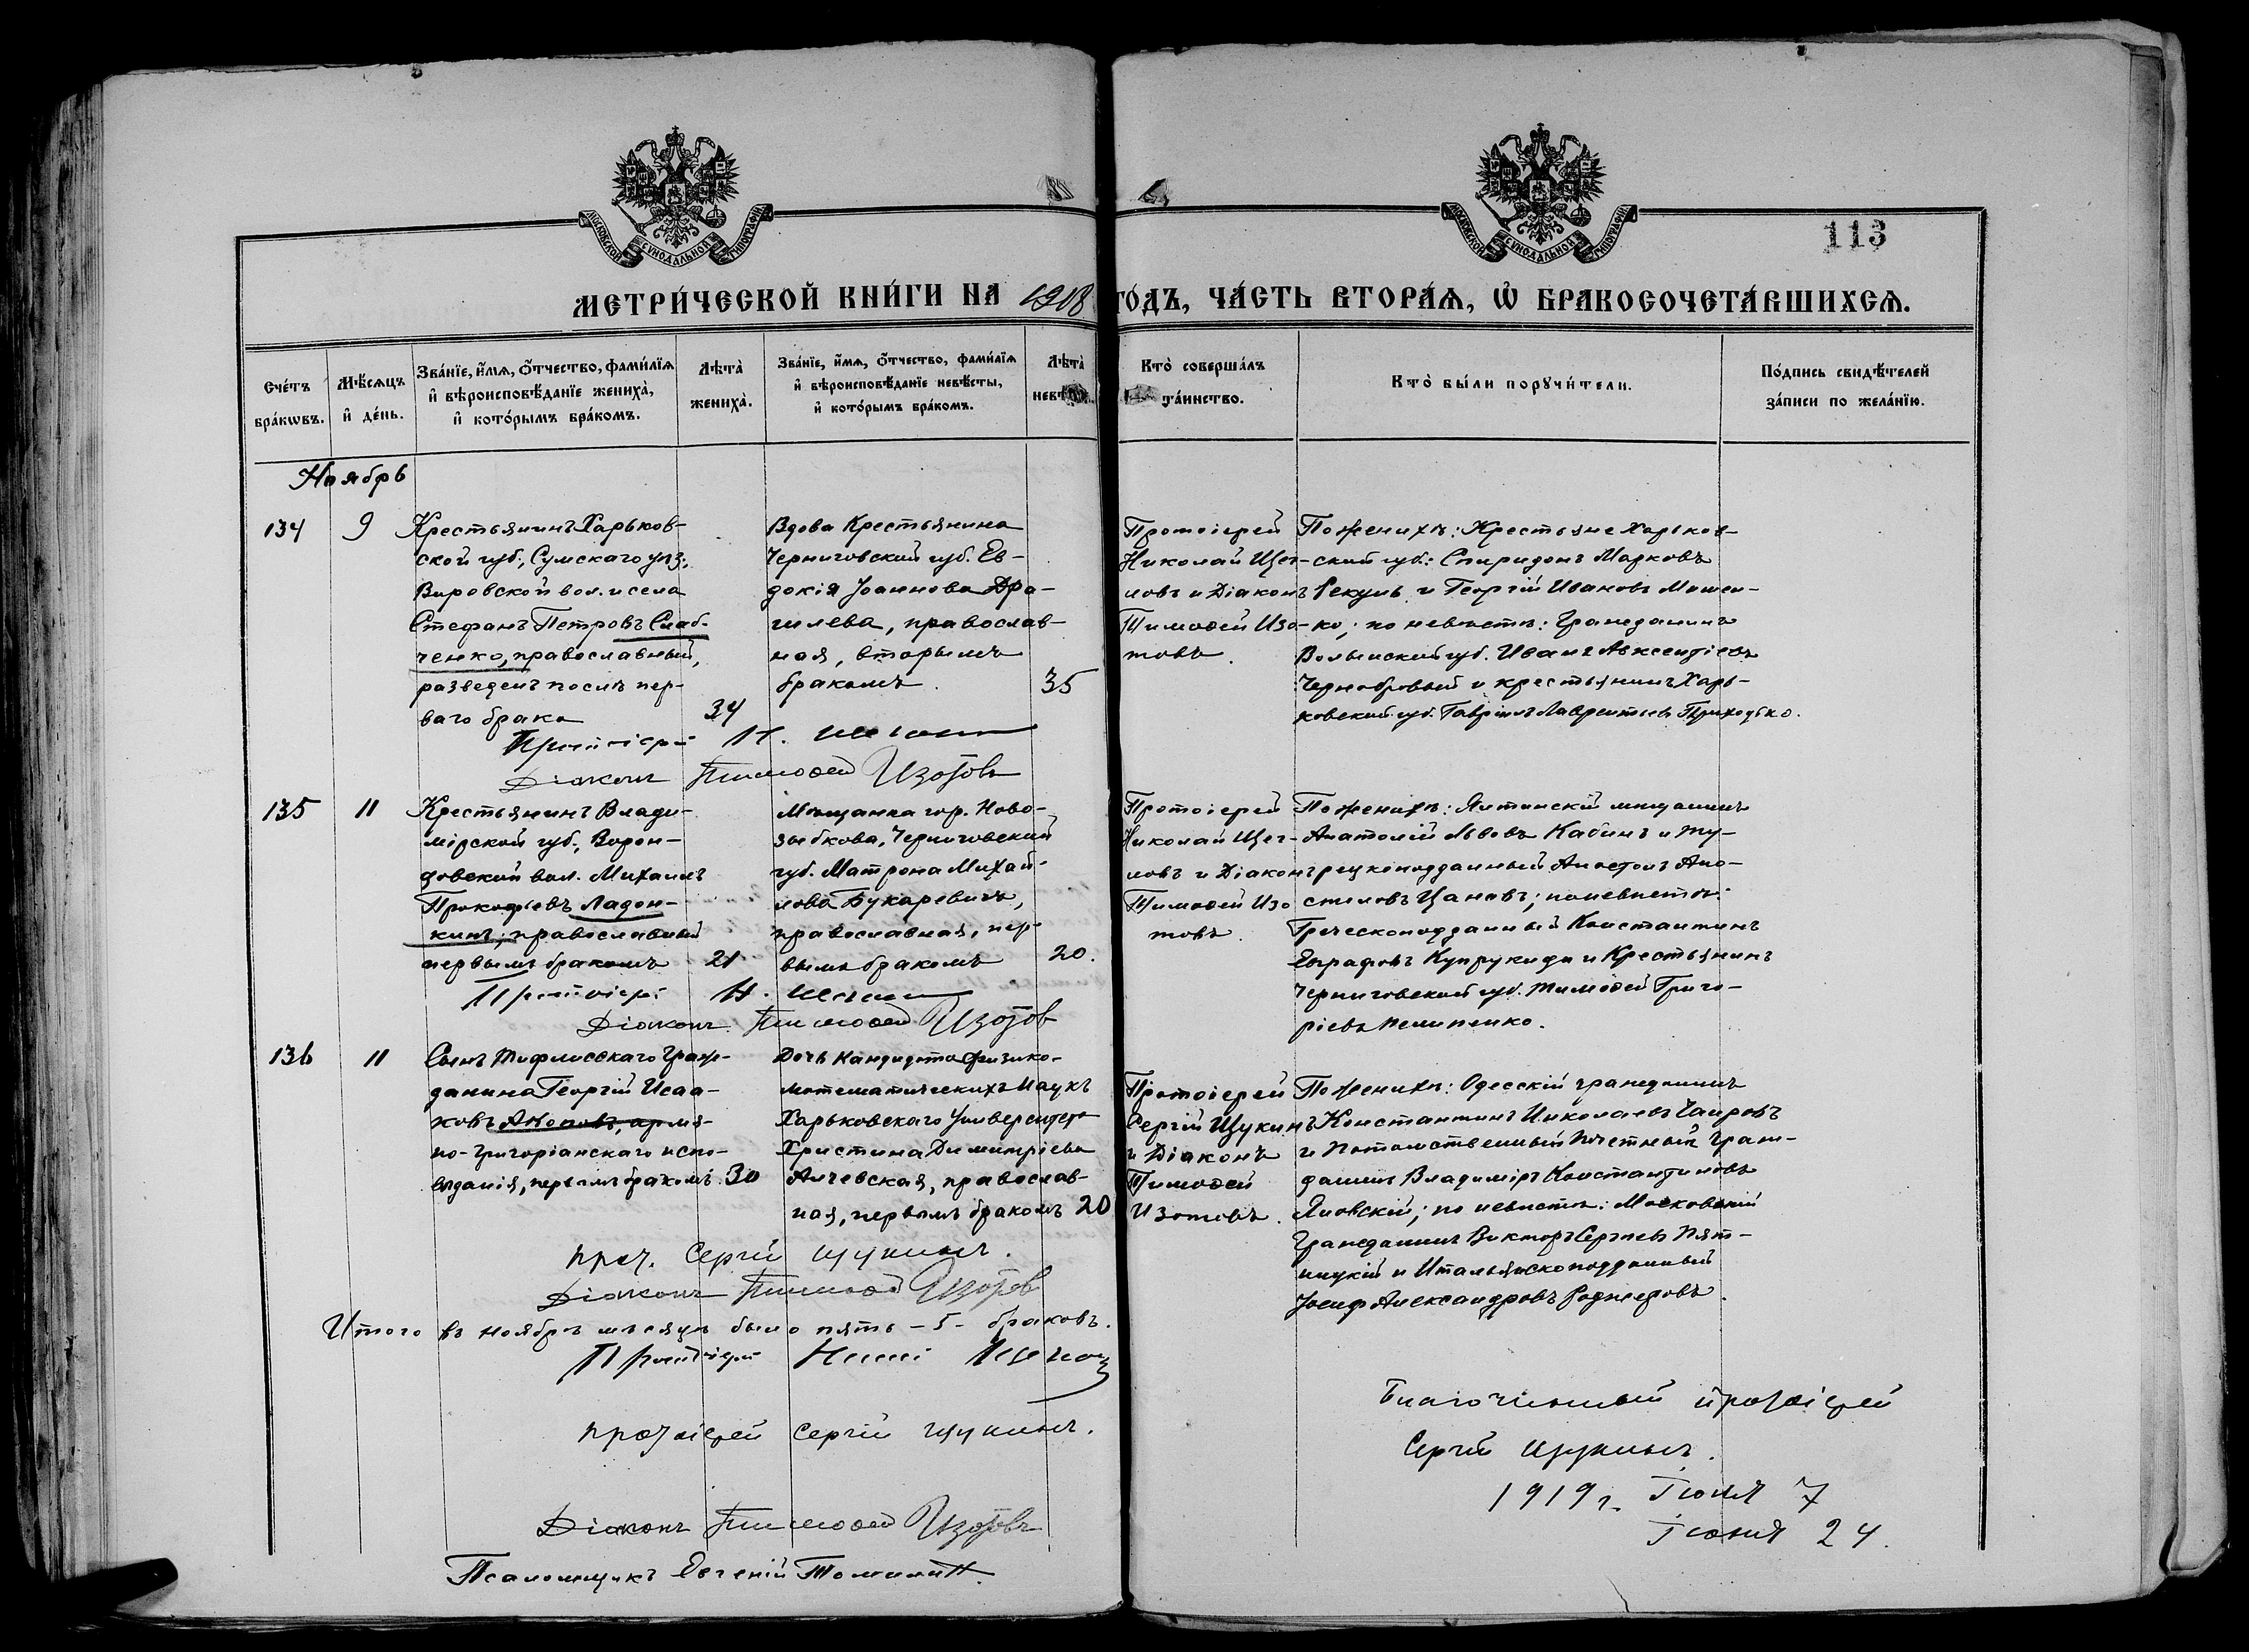 МОСКОВСКОЙ СѴНОДАЛЬНОЙ ТИПОГРАФІИ
МОСКОВСКОЙ СѴНОДАЛЬНОЙ ТИПОГРАФІИ
113
МЕТРИ́ЧЕСКОЙ КНИ́ГИ НА 1918 ГО́ДЪ, ЧА́СТЬ ВТОРА́Ѧ, Ѡ҆ БРАКОСОЧЕТА́ВШИХСѦ.
Сче́тъ бра́кѡвъ.
Мѣ́сѧцъ и҆ де́нь.
Зва́нїе, и҆́мѧ, ѻ҆́тчество, фами́лїѧ и҆ вѣроисповѣ́данїе жениха̀, и҆ кото́рымъ бра́комъ.
Лѣта̀ жениха̀.
Зва́нїе, и҆́мѧ, ѻ҆́тчество, фами́лїѧ и҆ вѣроисповѣ́данїе невѣ́сты, и҆ кото́рымъ бра́комъ.
Лѣта̀
Кто̀ соверша́лъ та́инство.
Кто̀ бы́ли порꙋчи́тели.
По́дпись свидѣ́телей за́писи по жела́нїю.
Ноябрь
134 9
Крестьянинъ Харьков-
ской губ., Сумскаго уѣз.,
Вировской вол. и села
Стефанъ Петровъ Слаб-
ченко, православный,
разведенъ послѣ пер-
ваго брака 34
Вдова Крестьянина
Черниговской губ. Ев-
докія Іоаннова Дра-
гилева, православ-
ная, вторымъ
бракомъ. 35
Протоіерей
Николай Щег-
ловъ и Діаконъ
Тимоѳей Изо-
товъ.
По женихѣ: Крестьяне Харьков-
ской губ.: Спиридонъ Марковъ
Рекунъ и Георгій Ивановъ
по невѣстѣ: Гражданинъ
Волынской губ. Иванъ Авксентіевъ
Чернобровый и крестьянинъ Харь-
ковской губ. Гавріилъ Лаврентьевъ Приходько.
Протоіерей Н. Щегловъ
Діаконъ Тимоѳей Изотовъ
135 11
Крестьянинъ Влади-
мірской губ.,
вол. Михаилъ
Прокофьевъ Ладон-
кинъ; православный
первымъ бракомъ 21
Мѣщанка гор. Ново-
зыбкова, Черниговской
губ. Матрона Михай-
лова Букаревичъ,
православная, пер-
вымъ бракомъ 20.
Протоіерей
Николай Щег-
ловъ и Діаконъ
Тимоѳей Изо
товъ.
По женихѣ: Ялтинскій мѣщанинъ
Анатолій Львовъ Кабинъ и ту-
рецкоподданный Апостолъ Апо-
столовъ Цановъ; по невѣстѣ:
Греческоподданный Константинъ
Евграфовъ и Крестьянинъ
Черниговской губ. Тимоѳей Григо-
рьевъ Пилипенко.
Протоіерей Н. Щегловъ
Діаконъ Тимоѳей Изотов
136 11
Сынъ Тифлисскаго Граж-
данина Георгій Исаа-
ковъ Акоповъ, армя-
но-григоріанскаго испо-
вѣданія, первымъ бракомъ. 30
Дочь Кандидата физико-
математическихъ Наукъ
Харьковскаго Университета
Христина Димитріева
Алчевская, православ-
ная, первымъ бракомъ 20
Протоіерей
Сергій Щукинъ
и Діаконъ
Тимоѳей
Изотовъ.
По женихѣ: Одесскій гражданинъ
Константинъ Николаевъ Чаировъ
и Потомственный Почетный Граж-
данинъ Владиміръ Константиновъ
Яновскій; по невѣстѣ: Московскій
Гражданинъ Викторъ Сергѣевъ Пят-
ницкій и Итальянскоподданный
Іосифъ Александровъ Роджеровъ.
прот. Сергій Щукинъ.
Діаконъ Тимоѳей Изотов
Итого въ ноябрѣ мѣсяцѣ было пять -5- браковъ.
Протоіерей Щегловъ
протоіерей Сергій Щукинъ.
Діаконъ Тимоѳей Изотовъ
Псаломщикъ Евгеній
Благочинный протоіерей
Сергій Щукинъ.
1919 г. Іюня 7
Іюня 24.